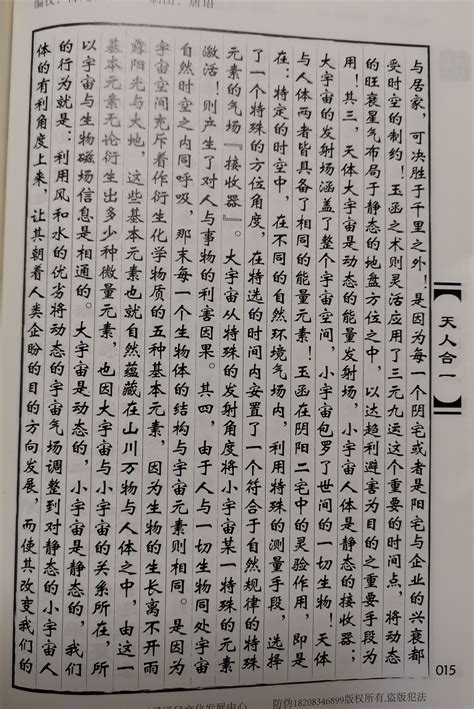 天人合一
与居家，可决胜于千里之外！是因为每一个阴宅或者是阳宅与企业的兴衰都
受时空的制约！玉函之术则灵活应用了三元九运这个重要的时间点，将动态
的旺衰星气布局于静态的地盘方位之中，以达趋利避害为目的之重要手段为
用！其三，天体大宇宙是动态的能量发射场，小宇宙人体是静态的接收器；
大宇宙的发射场涵盖了整个宇宙空间，小宇宙包罗了世间的一切生物！天体
与人体两者皆具备了相同的能量元素！玉函在阴阳二宅中的灵验作用，即是
在：特定的时空中，在不同的自然环境气场内，利用特殊的测量手段，选择
了一个特殊的方位角度，在特选的时间内安置了一个符合于自然规律的特殊
元素的气场『接收器』。大宇宙从特殊的发射角度将小宇宙某一特殊的元素
激活！则产生了对人与事物的利害因果。其四，由于人与一切生物同处宇宙
自然时空之内同呼吸，那末每一个生物体的结构与宇宙元素则相同。是因为
宇宙空间充斥着衍生化学物质的五种基本元素，因为生物的生长离不开雨
露阳光与大地，这些基本元素也就自然蕴藏在山川万物与人体之中，由这一
基本元素无论衍生出多少种微量元素，也因大宇宙与小宇宙的关系所在，所
以宇宙与生物磁场信息是相通的。大宇宙是动态的，小宇宙是静态的，我们
的行为就是：利用风和水的优劣将动态的宇宙气场调整到对静态的小宇宙人
体的有利角度上来，让其朝着人类企盼的目的方向发展，而使其改变我们的
015
防伪18208346899版权所有,盗版犯法